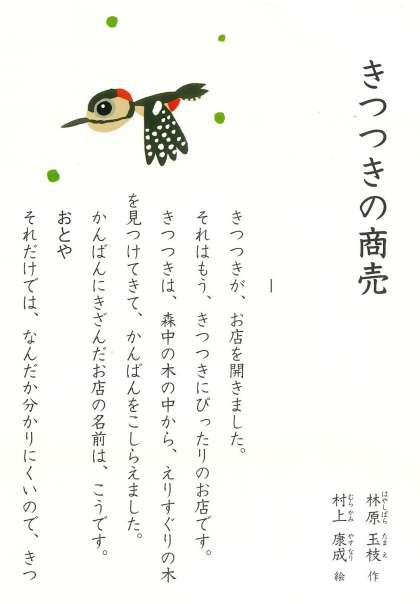 きつつきの商売
林原 玉枝 作
はやしばら たまえ
村上 康成 絵
むらかみ やすなり
一
きつつきが、お店を開きました。
それはもう、きつつきにぴったりのお店です。
きつつきは、森中の木の中から、えりすぐりの木
を見つけてきて、かんばんをこしらえました。
かんばんにきざんだお店の名前は、こうです。
おとや
それだけでは、なんだか分かりにくいので、きつ